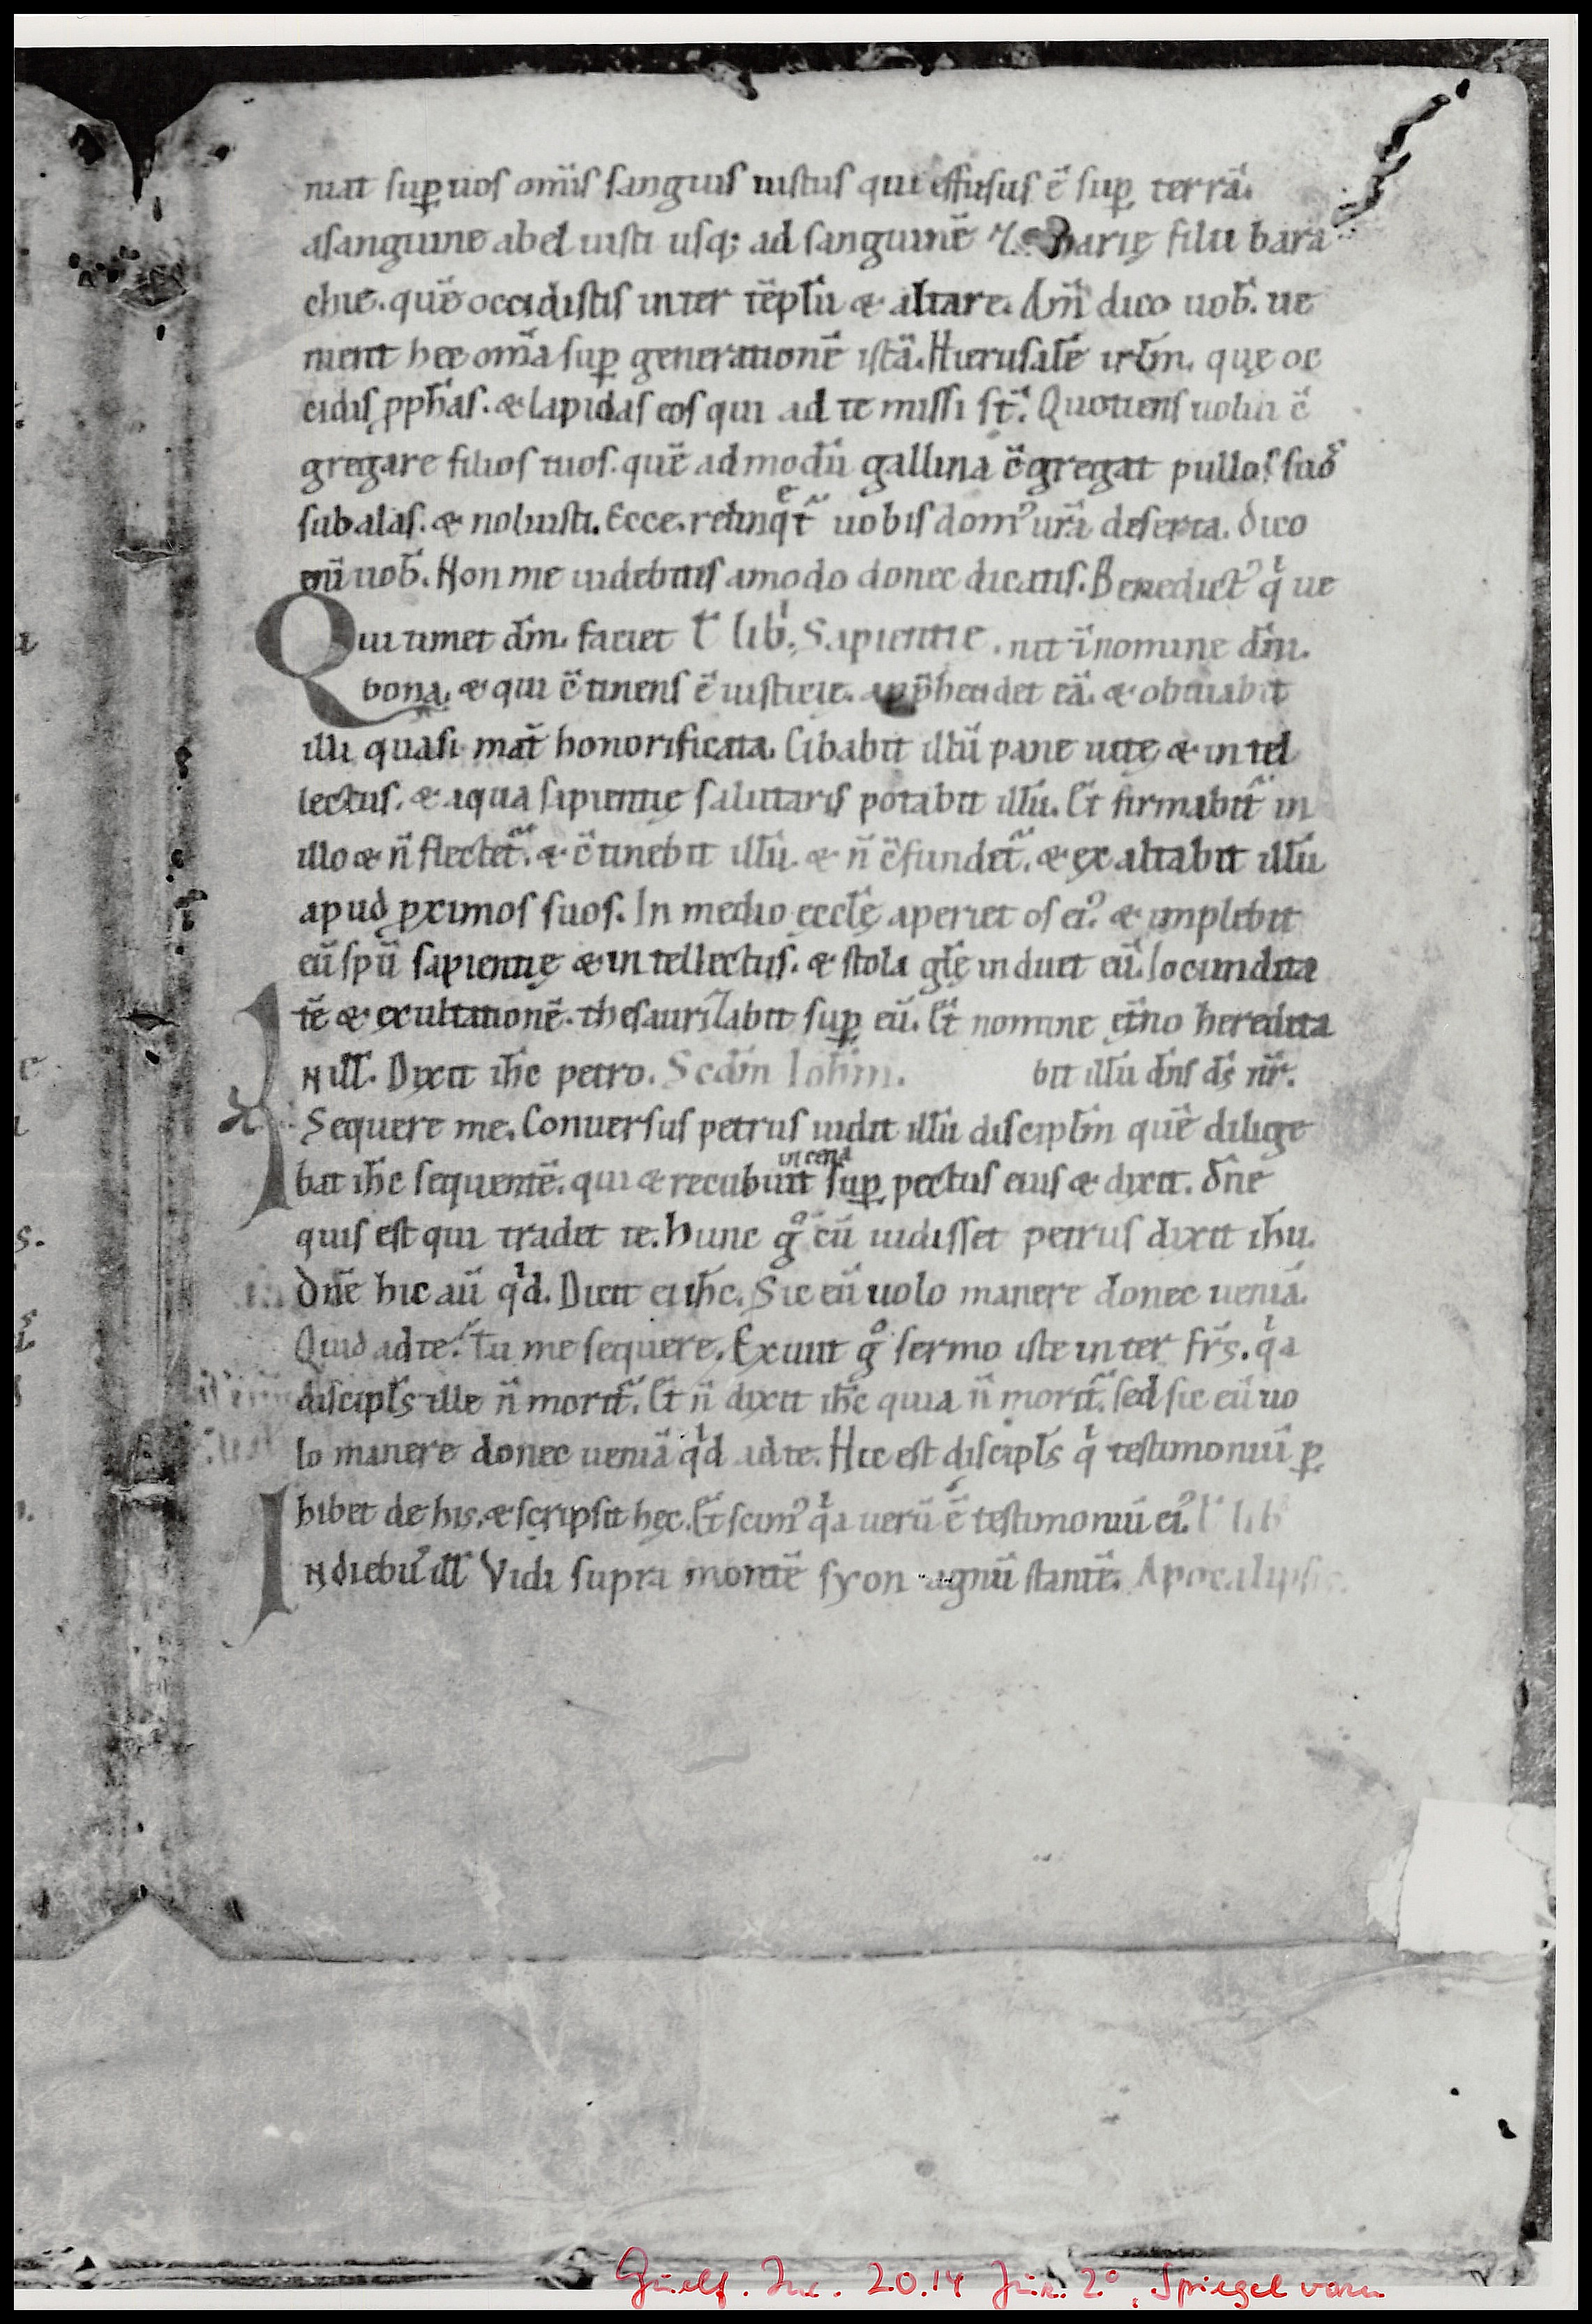 niat suꝑ uos om̅is sanguis iustus qui effusus e̅ suꝑ terra̅.
asanguine abel iusti usq; ad sanguine̅ harie̜ filii bara
chie. que̅ occidistis inter te̅plu̅ & altare. Am̅ dico uob̅. ue
nient hec om̅a suꝑ generatione̅ ista̅. Hierusale̅ irl̅m. que̜ oc
cidis ꝓph̅as. & lapidas eos qui ad te missi st̅. Quotiens uolui c̅
gregare filios tuos. que̅ admodu̅ gallina c̅gregat pullos suos
sub alas. & noluisti. Ecce. relinqᵉt̅ uobis domꝰ ur̅a deserta. Dico
eni̅ uob̅. Non me uidebitis amodo donec dicatis. Benedictꝰ qⁱ ue
Qui timet dm̅. faciet L̅ lib̅. Sapientie. nit i̅nomine dm̅i.
bona. & qui c̅tinens e̅ iusticie. app̅hendet ea̅. & obuiabit
illi quasi mat̅ honorificata. Cibabit illu̅ pane uite̜ & intel
lectus. & aqua sapientie̜ salutaris potabit illu̅. Et firmabit̅ in
illo & n̅ flectet̅. & c̅tinebit illu̅. & n̅ c̅fundet̅. & exaltabit illu̅
apud ꝓximos suos. In medio eccl̅e̜ aperiet os eiꝰ & implebit
eu̅ spu̅ sapientie̜ & intellectus. & stola gl̅e̜ induet eu̅. Iocundita
te̅ & exultatione̅. thesaurizabit suꝑ eu̅. Et nomine et̅no heredita
IN ill̅. Dixit ih̅c petro. Scdm̅ Ioh̅m. bit illu̅ dn̅s ds̅ nr̅.
Sequere me. Conuersus petrus uidit illu̅ discipl̅m que̅ dilige
in cena
bat ih̅c sequente̅. qui & recubuit suꝑ pectus eius & dixit. dn̅e
quis est qui tradet te. Hunc gᵒ cu̅ uidisset petrus dixit ih̅u.
Dn̅e hic au̅ qⁱd. Dicit ei ih̅c. Sic eu̅ uolo manere donec uenia̅.
Quid ad te? Tu me sequere. Exiuit gᵒ sermo iste inter fr̅s. qⁱa
discipl̅s ille n̅ morit̅. Et n̅ dixit ih̅c quia n̅ morit̅. sed sic eu̅ uo
lo manere donec uenia̅ qⁱd ad te. Hic est discipl̅s qⁱ testimoniu̅ ꝑ
hibet de his. & scripsit he̜c. Et scimꝰ qⁱa ueru̅ e̅ testimoniu̅ eiꝰ. L̅ lib
IN diebuꝰ ill̅ Vidi supra monte̅ syon agnu̅ stante̅. Apocalipsis
Guelf. Inc. 20.14 Jur. 2°, Spiegel vorn